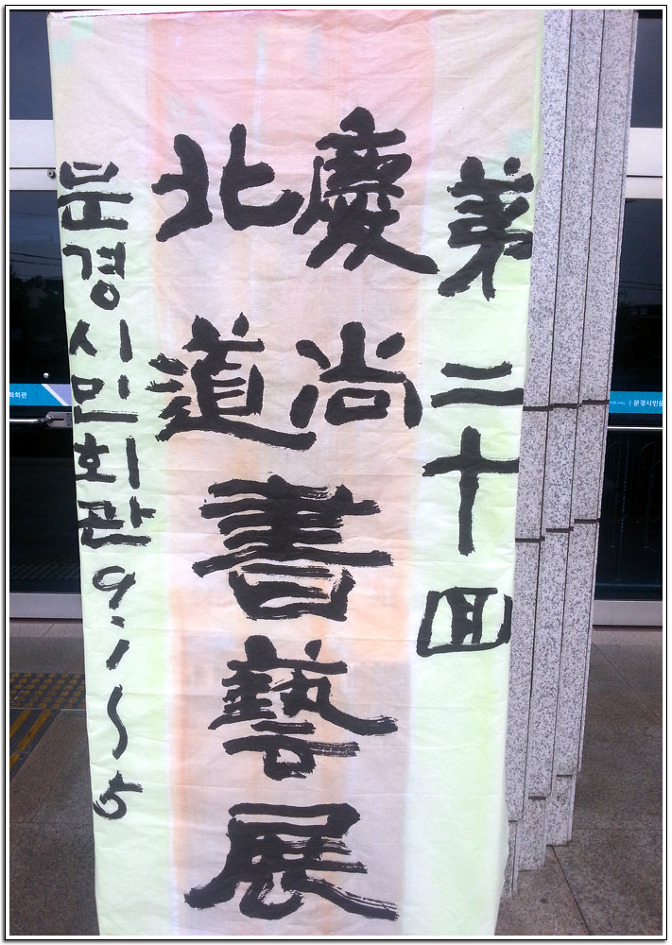 第二十回
慶尚
北道
書藝展
문경시민회관 9.1~5
화회관
문경시민문